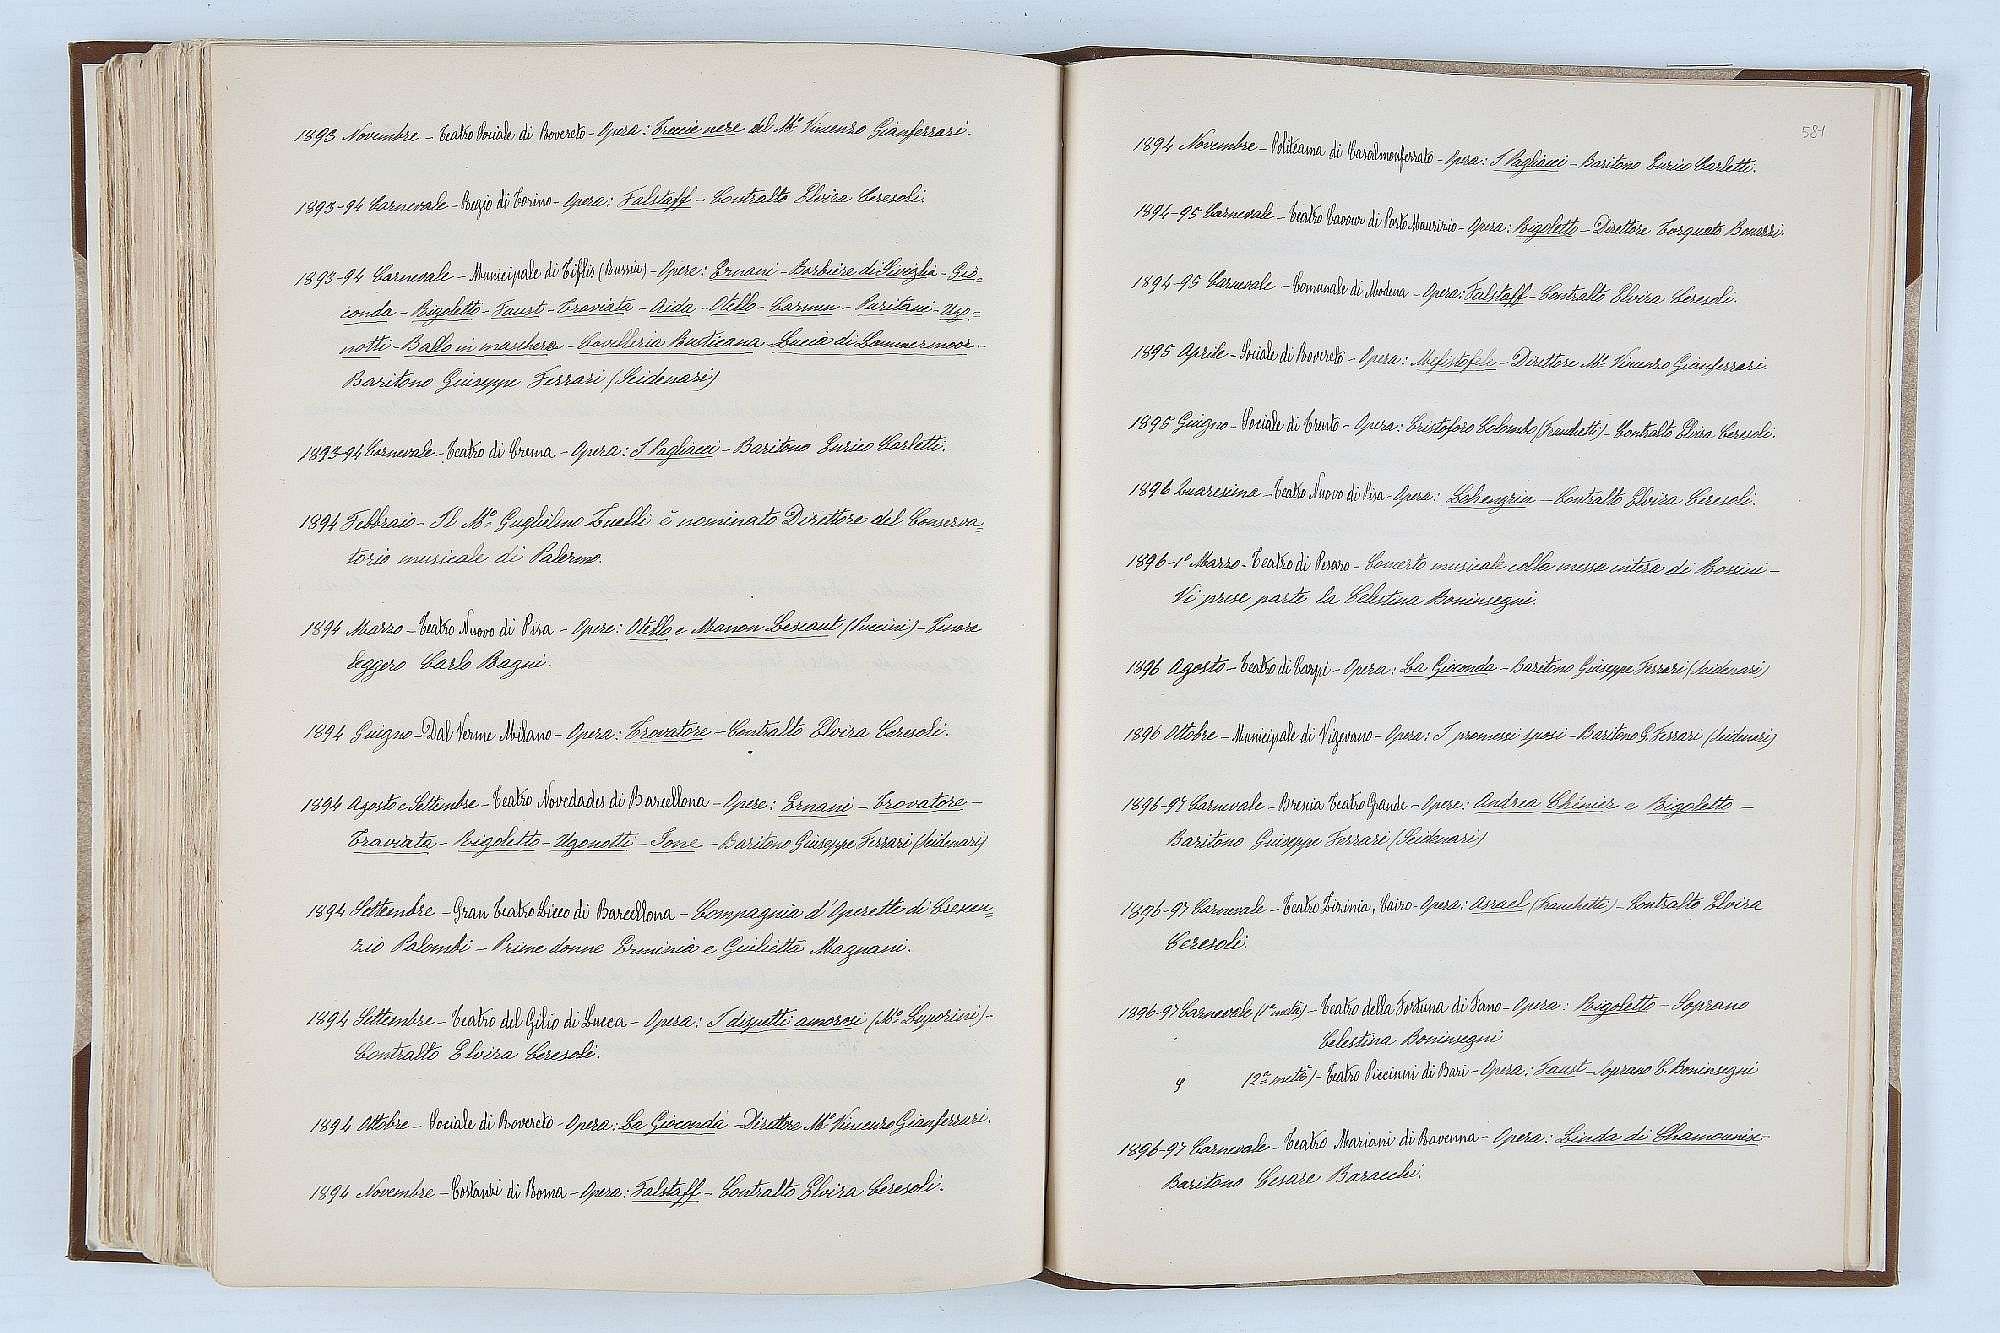 1893 Novembre – Teatro Sociale di Rovereto – Opera: Treccie nere del Mº Vincenzo Gianferrari.
1893-94 Carnevale – Regio di Torino – Opera: Falstaff – Contralto Elvira Ceresoli.
1893-94 Carnevale – Municipale di Tiflis (Russia) – Opere: Ernani – Barbiere di Siviglia – Gio-
conda – Rigoletto – Faust – Traviata – Aida – Otello – Carmen – Puritani – Ugo-
notti – Ballo in maschera – Cavalleria Rusticana – Lucia di Lammermoor –
Baritono Giuseppe Ferrari (Seidenari)
1893-94 Carnevale – Teatro di Crema – Opera: I Pagliacci – Baritono Enrico Carletti.
1894 Febbraio – Il Mº Guglielmo Zuelli è nominato Direttore del Conserva-
torio musicale di Palermo.
1894 Marzo – Teatro Nuovo di Pisa – Opere: Otello e Manon Lescaut (Puccini) – Tenore
leggero Carlo Bagni.
1894 Giugno – Dal Verme Milano – Opera: Trovatore – Contralto Elvira Ceresoli.
1894 Agosto e Settembre – Teatro Novedades di Barcellona – Opere: Ernani – Trovatore –
Traviata – Rigoletto – Ugonotti – Jone – Baritono Giuseppe Ferrari (Seidenari)
1894 Settembre – Gran Teatro Liceo di Barcellona – Compagnia d'Operette di Crescen-
zio Palombi – Prime donne Erminia e Giulietta Magnani.
1894 Settembre – Teatro del Giglio di Lucca – Opera: I dispetti amorosi (Mº Luporini) –
Contralto Elvira Ceresoli.
1894 Ottobre – Sociale di Rovereto – Opera: La Gioconda – Direttore Mº Vincenzo Gianferrari.
1894 Novembre – Costanzi di Roma – Opera: Falstaff – Contralto Elvira Ceresoli.
581
1894 Novembre – Politeama di Casalmonferrato – Opera: I Pagliacci – Baritono Enrico Carletti.
1894-95 Carnevale – Teatro Cavour di Porto Maurizio – Opera: Rigoletto – Direttore Torquato Bonezzi.
1894-95 Carnevale – Comunale di Modena – Opera: Falstaff – Contralto Elvira Ceresoli.
1895 Aprile – Sociale di Rovereto – Opera: Mefistofele – Direttore Mº Vincenzo Gianferrari.
1895 Giugno – Sociale di Trento – Opera: Cristoforo Colombo (Franchetti) – Contralto Elvira Ceresoli.
1896 Quaresima – Teatro Nuovo di Pisa – Opera: Lohengrin – Contralto Elvira Ceresoli.
1896 – 1º Marzo – Teatro di Pesaro – Concerto musicale colla messa intera di Rossini –
Vi prese parte la Celestina Boninsegni.
1896 Agosto – Teatro di Carpi – Opera: La Gioconda – Baritono Giuseppe Ferrari (Seidenari)
1896 Ottobre – Municipale di Vigevano – Opera: I promessi sposi – Baritono G. Ferrari (Seidenari)
1896-97 Carnevale – Brescia Teatro Grande – Opere: Andrea Chénier e Rigoletto –
Baritono Giuseppe Ferrari (Seidenari)
1896-97 Carnevale – Teatro Zizinia, Cairo – Opera: Asrael (Franchetti) – Contralto Elvira
Ceresoli.
1896-97 Carnevale (1ª metà) – Teatro della Fortuna di Fano – Opera: Rigoletto – Soprano
Celestina Boninsegni
(2ª metà) – Teatro Piccinni di Bari – Opera: Faust – Soprano C. Boninsegni
1896-97 Carnevale – Teatro Mariani di Ravenna – Opera: Linda di Chamounix –
Baritono Cesare Baracchi.